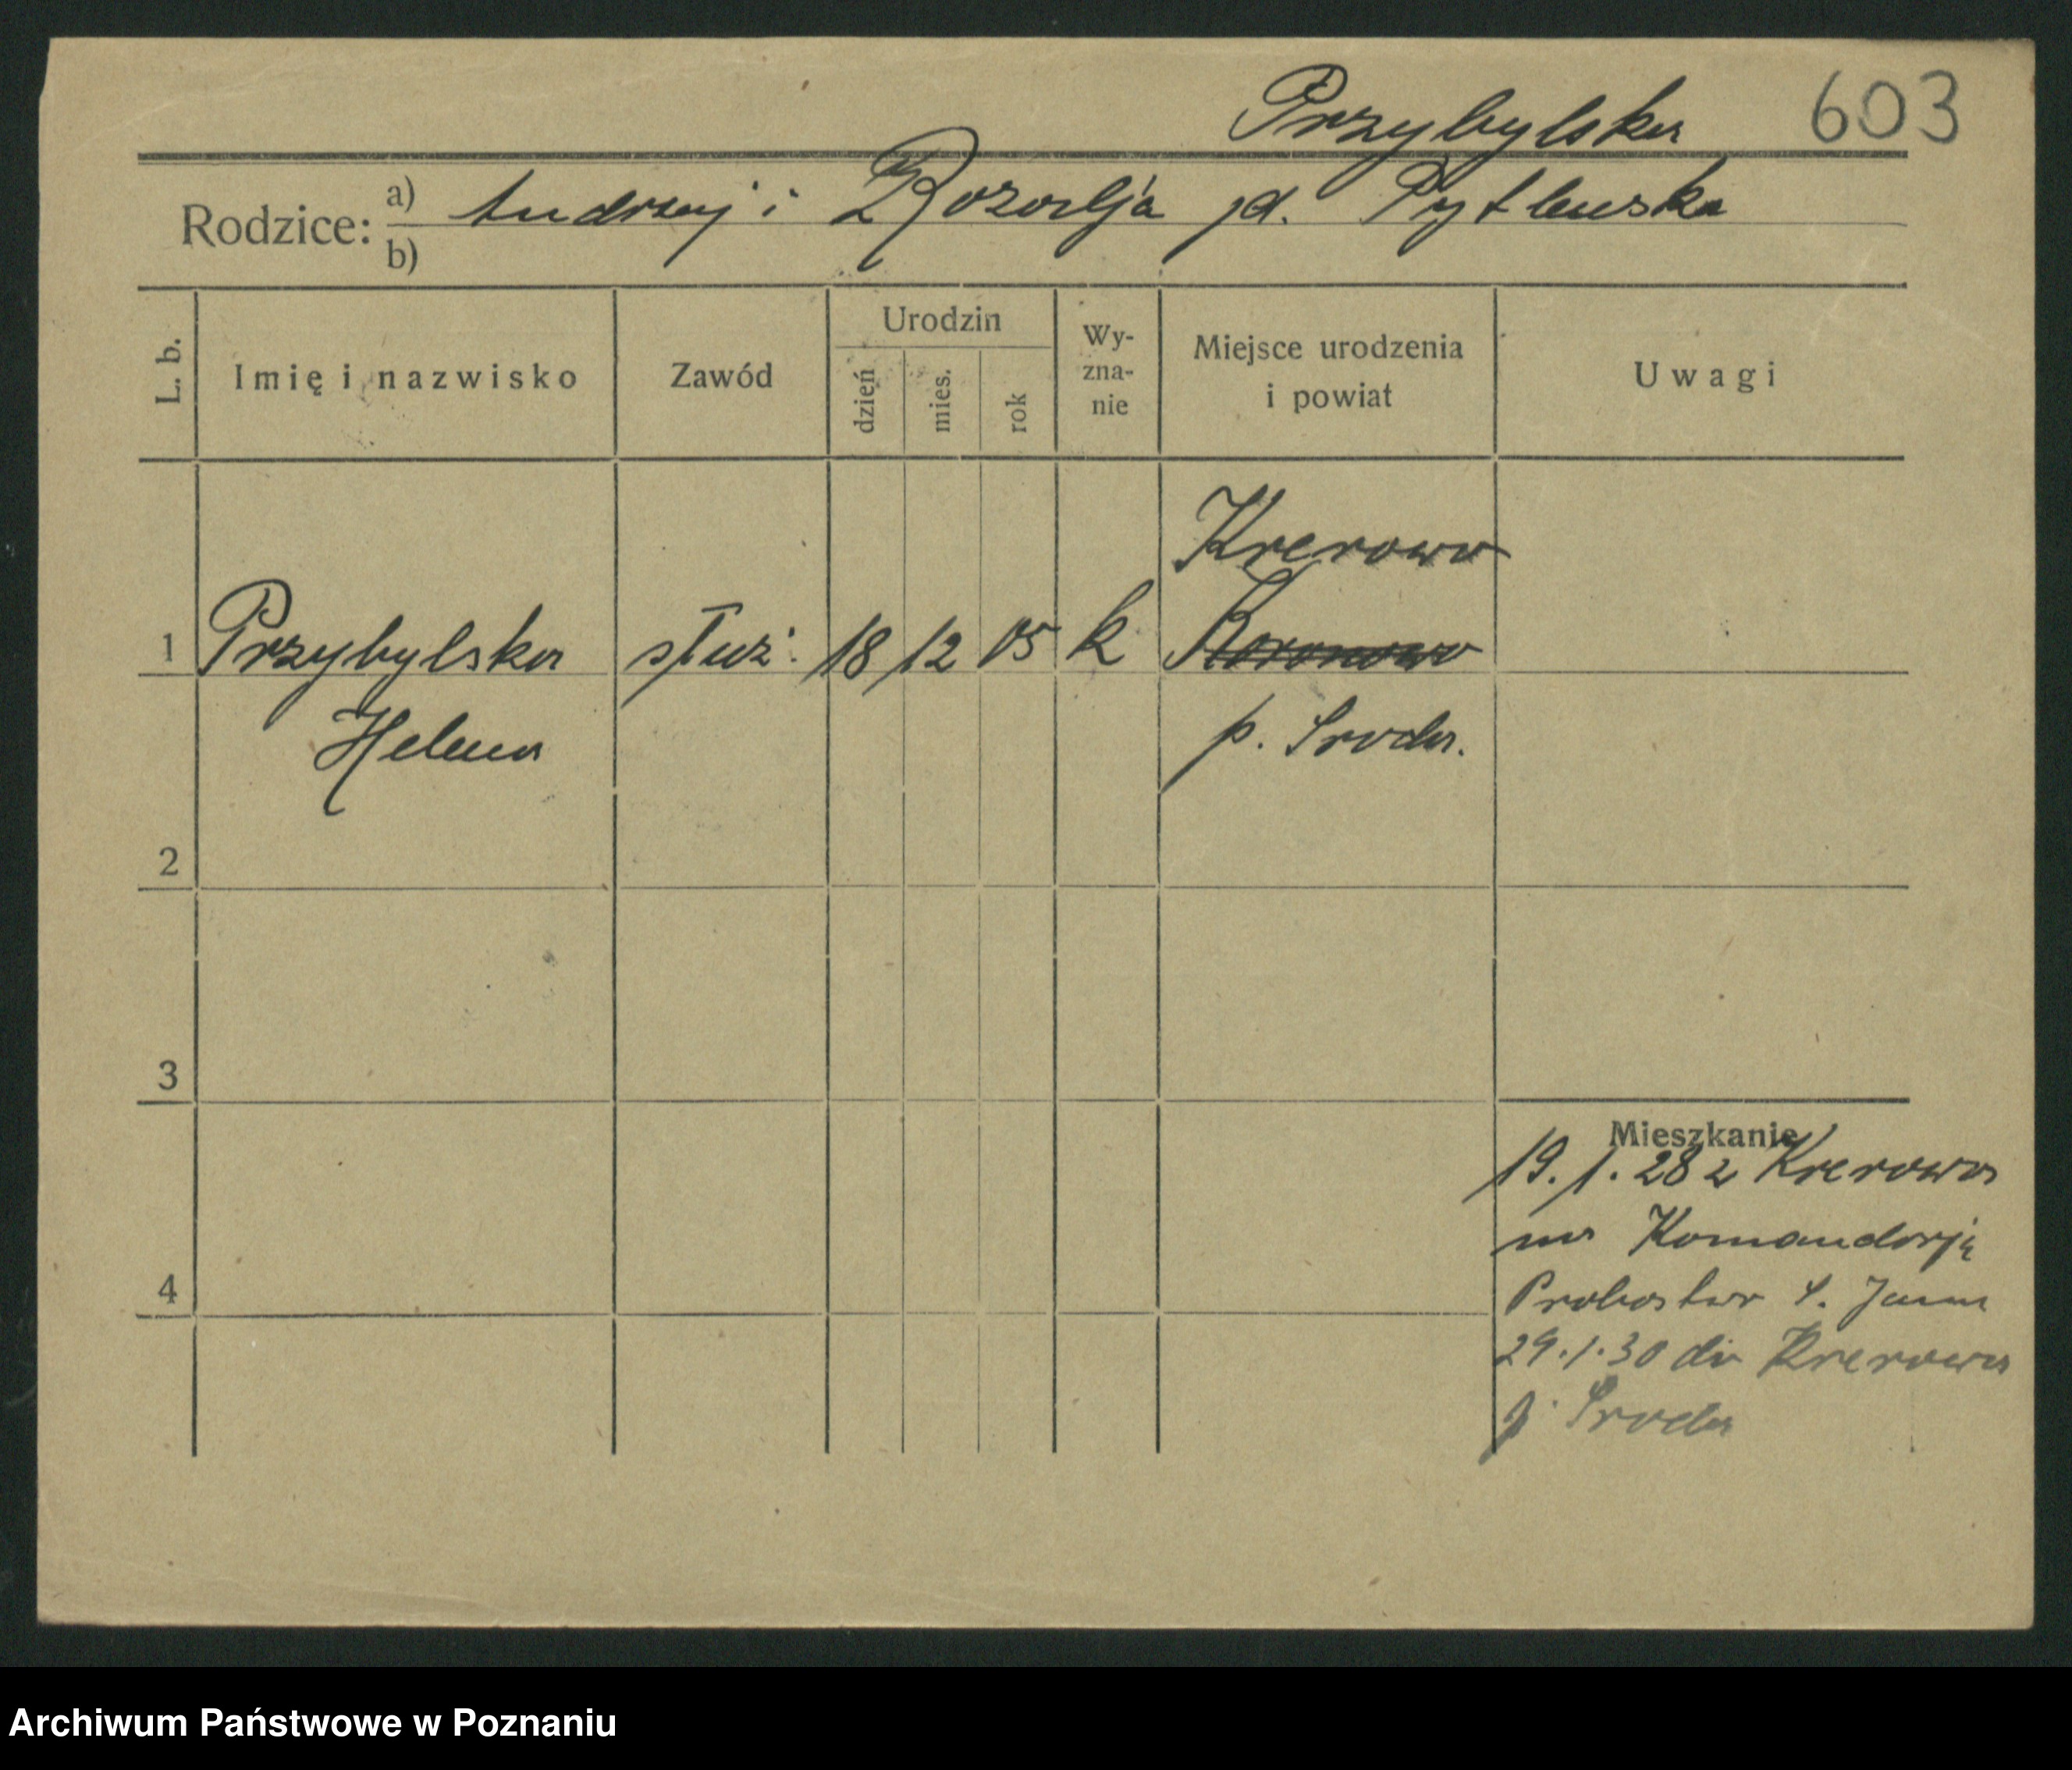 Przybylska 603
Rodzice: a) Andrzej i Rozalja jd. Pytlewska
b)
L. b.
Imię i nazwisko
Zawód
Urodzin
dzień
mies.
rok
Wy-
zna-
nie
Miejsce urodzenia
i powiat
Uwagi
Krerowo
1 Przybylska służ. 18 12 05 k Koronowo
Helena p. Sroda.
2
3
4
Mieszkanie
19.1.28 z Krerowa
na Komandorją
Probostwo S. Jana
29.1.30 do Krerowa
p. Sroda
Archiwum Państwowe w Poznaniu